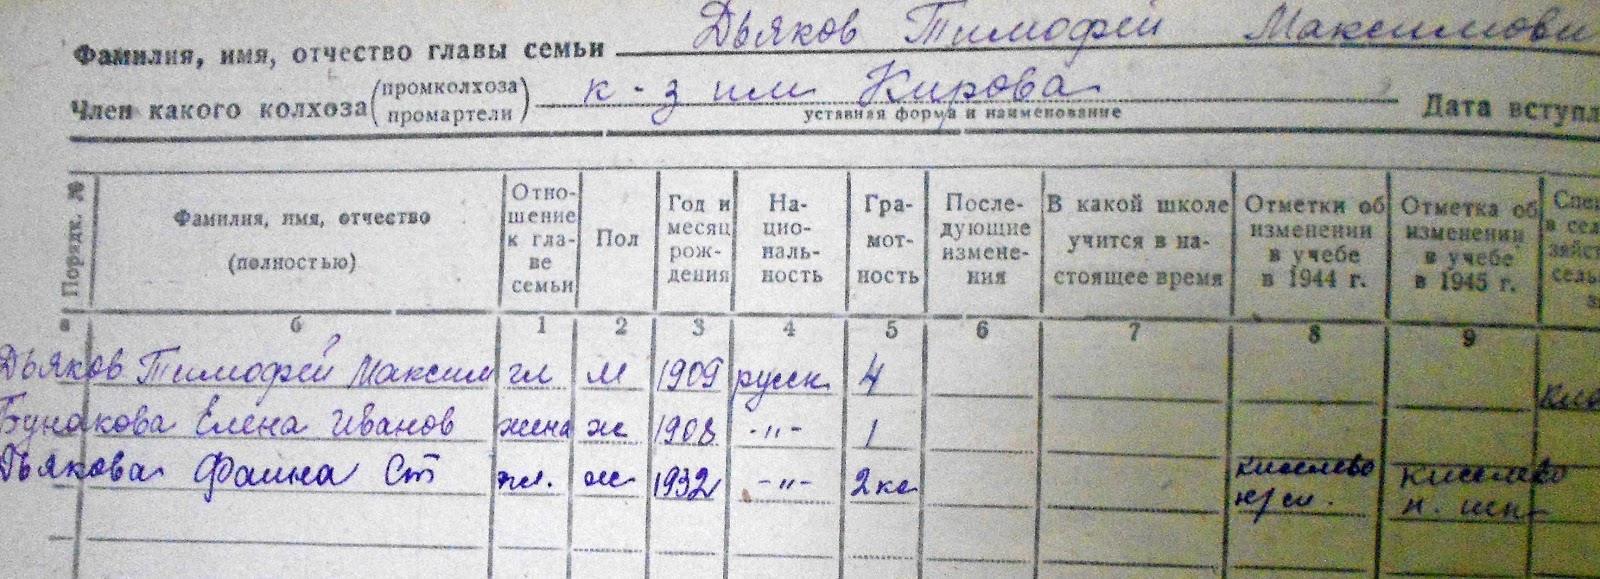 Фамилия, имя, отчество главы семьи Дьяков Тимофей Максимови
Член какого колхоза (промколхоза промартели) к-з им Кирова Дата вступл
уставная форма и наименование
Порядк. № Фамилия, имя, отчество (полностью) Отно-шение к гла-ве семьи Пол Год и месяц рож-дения На-цио-наль-ность Гра-мот-ность После-дующие измене-ния В какой школе учится в на-стоящее время Отметки об изменении в учебе в 1944 г. Отметка об изменении в учебе в 1945 г. Спец в сел зяйст сель
а б 1 2 3 4 5 6 7 8 9
Дьяков Тимофей Максим гл М 1909 русск 4
Бунакова Елена Иванов жена ж 1908 -"- 1
Дьякова Фаина Ст ж 1932 -"- 2 кл Киселево Киселево
н. шк